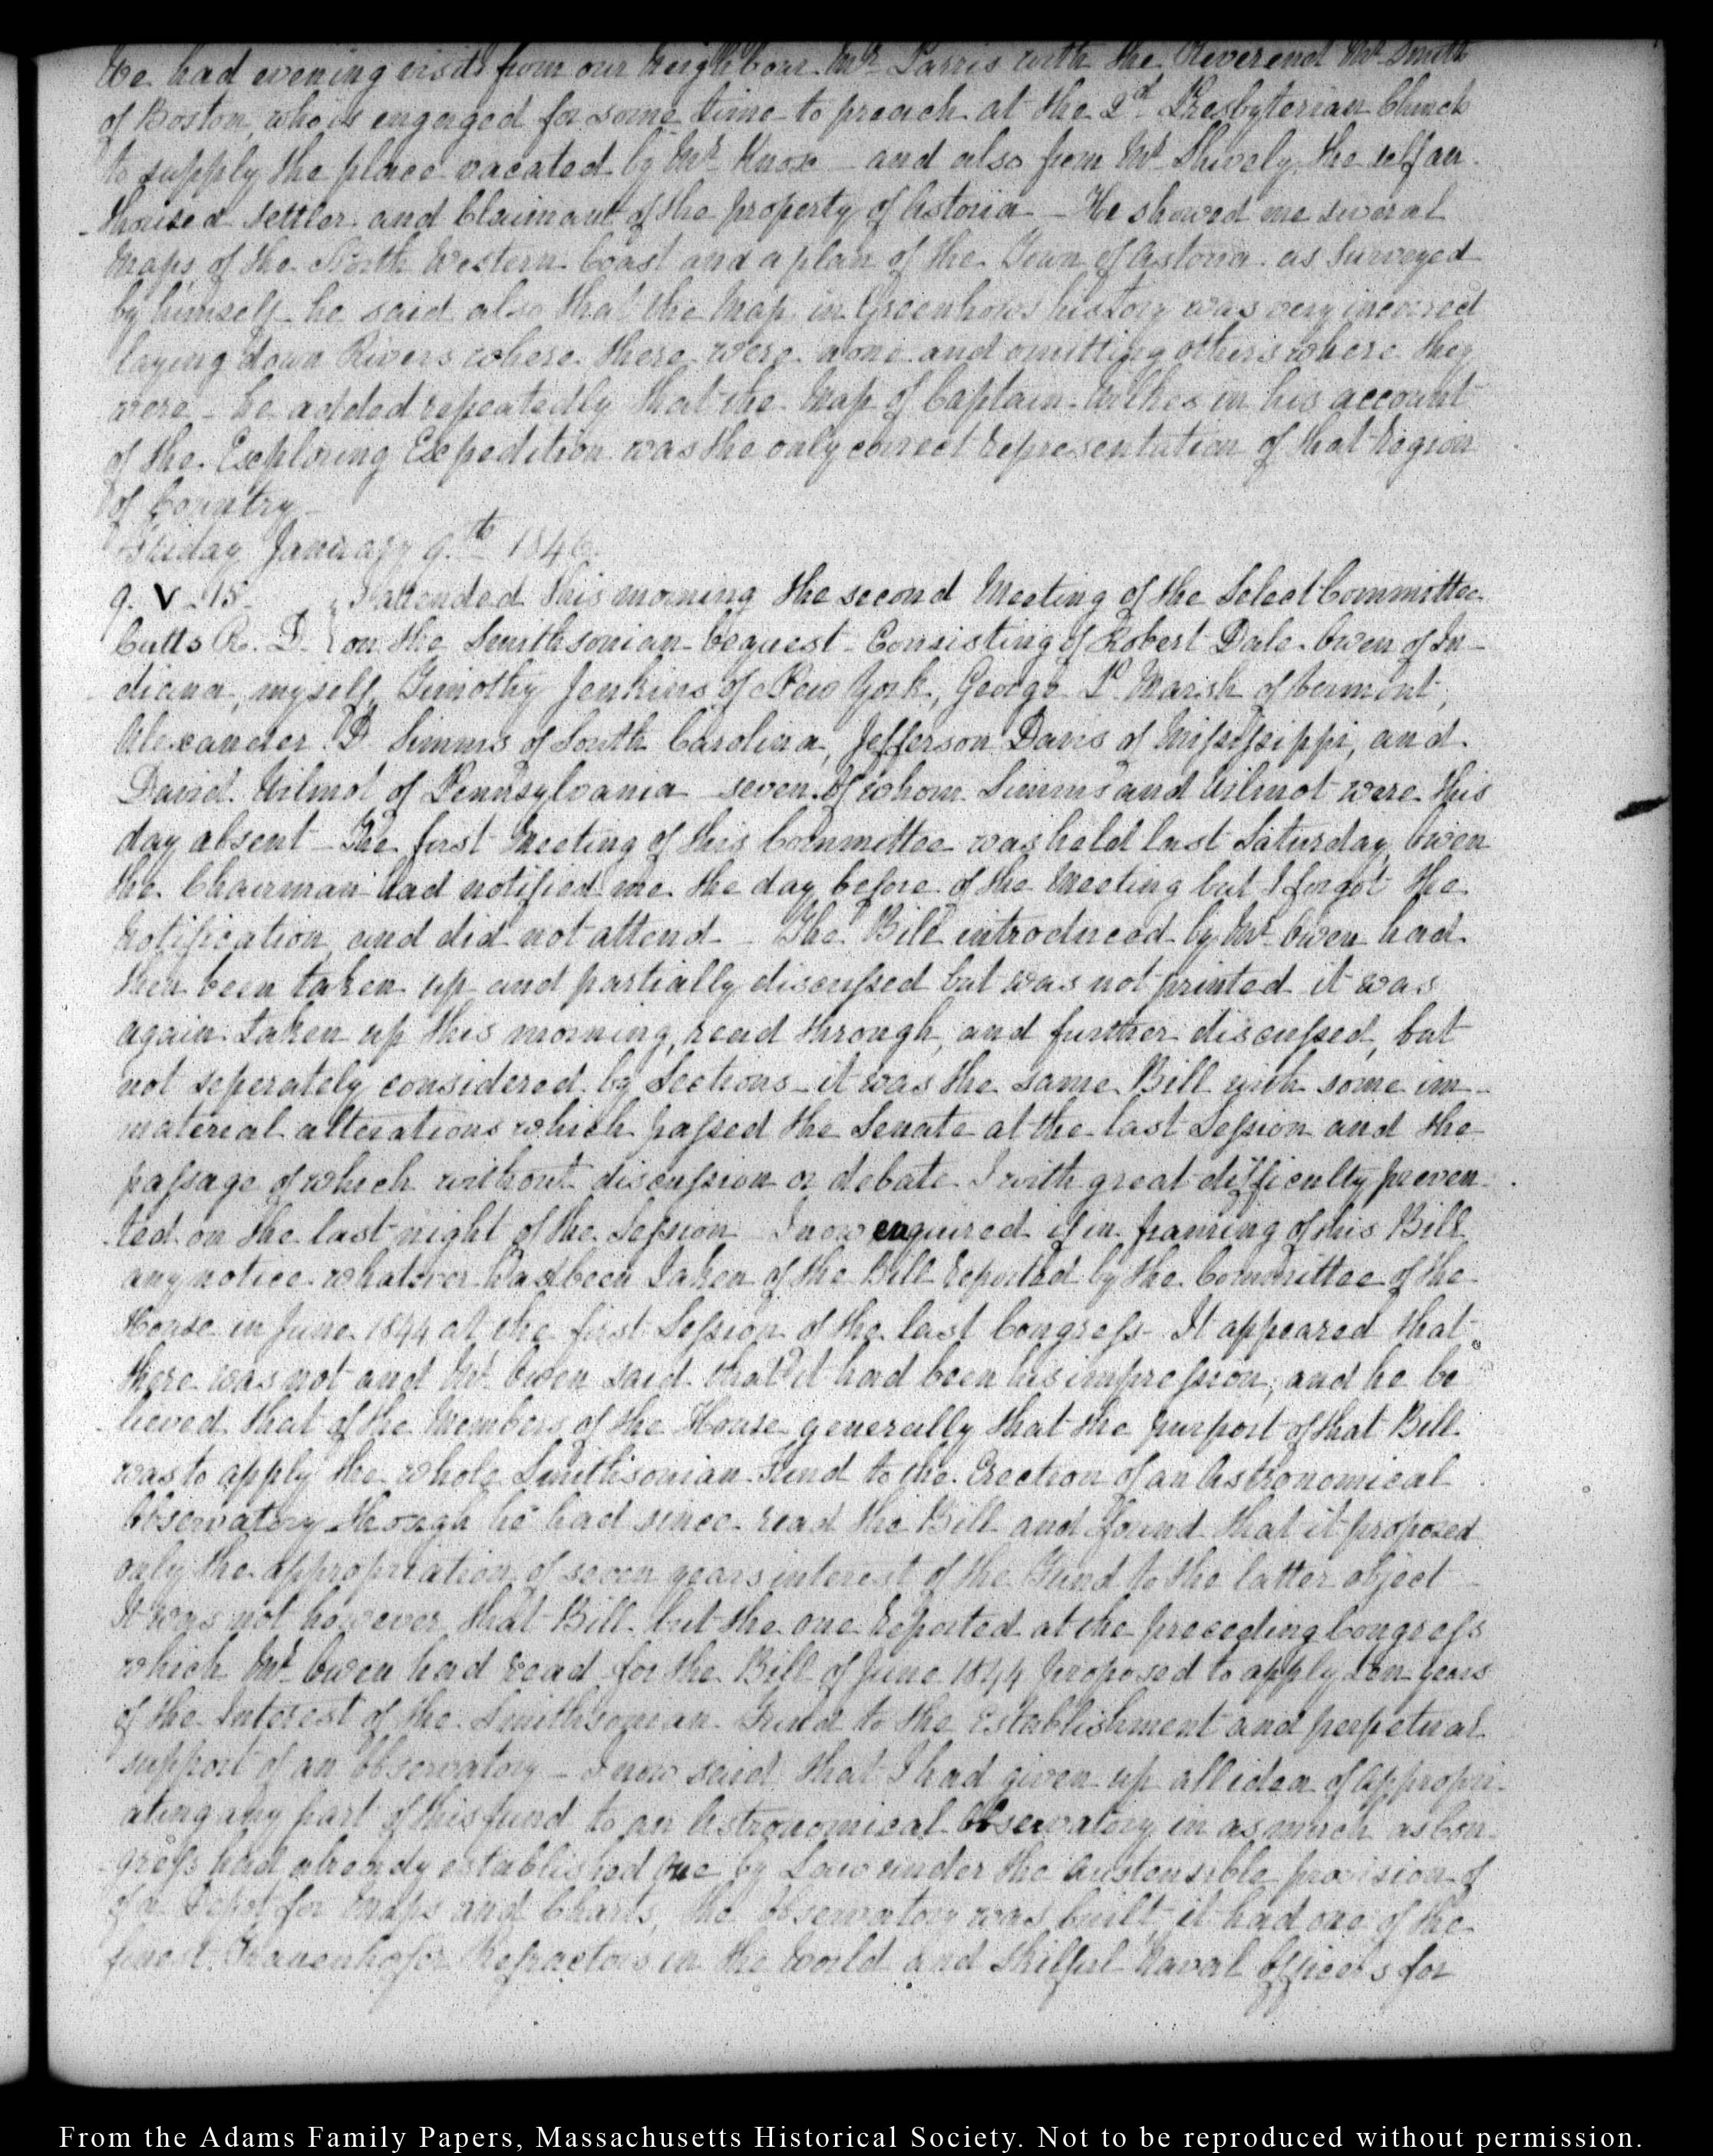 We had evening visits from our Neighbour Mr. Parris with the Reverend Mr. Smith
of Boston, who is engaged for some time to preach at the 2d. Presbyterian Church
to supply the place vacated by Mr. Knox — and also from Mr. Shively, the self au-
thorised settler and Claimant of the property of Astoria — He showed me several
Maps of the North Western Coast and a plan of the Town of Astoria as surveyed
by himself — he said also that the Map in Greenhows history was very incorrect
laying down Rivers where there were none and omitting others where they
were — he added repeatedly that the Map of Captain Wilkes in his account
of the Exploring Expedition was the only correct representation of that region
of Country —
Friday January 9.th 1846.
9. V. 15. I attended this morning the second Meeting of the Select Committee
Cutts R. D. on the Smithsonian bequest — Consisting of Robert Dale Owen of In-
diana, myself, Timothy Jenkins of New York, George P. Marsh of Vermont,
Alexander D. Simms of South Carolina, Jefferson Davis of Mississippi, and
David Wilmot of Pennsylvania — seven. Of whom Simms and Wilmot were this
day absent — The first Meeting of this Committee was held last Saturday, Owen
the Chairman had notified me the day before of the Meeting but I forgot the
Notification, and did not attend — The Bill introduced by Mr. Owen had
then been taken up and partially discussed but was not printed it was
again taken up this morning, read through, and further discussed, but
not seperately considered by Sections — it was the same Bill with some im-
material alterations which passed the Senate at the last Session and the
passage of which without discussion or debate I with great difficulty preven-
ted on the last night of the Session — I now enquired if in framing of this Bill
any notice whatever had been taken of the Bill reported by the Committee of the
House in June 1844 at the first Session of the last Congress — It appeared that
there was not and Mr. Owen said that it had been his impression, and he be
lieved that of the Members of the House generally that the purport of that Bill
was to apply the whole Smithsonian Fund to the Erection of an Astronomical
Observatory though he had since read the Bill and found that it proposed
only the appropriation of seven years interest of the Fund to the latter object —
It was not however that Bill but the one reported at the preceding Congress
which Mr. Owen had read for the Bill of June 1844 proposed to apply ten years
of the Interest of the Smithsonian Fund to the establishment and perpetual
support of an Observatory — I now said that I had given up all idea of appropri-
ating any part of this fund to an Astronomical Observatory in as much as Con-
gress had already established one by Law under the austensible provision of
of a Depot for Maps and Charts, the Observatory was built, it had one of the
finest Frauenhofer Refractors in the World and skilful Naval Officers for
From the Adams Family Papers, Massachusetts Historical Society. Not to be reproduced without permission.